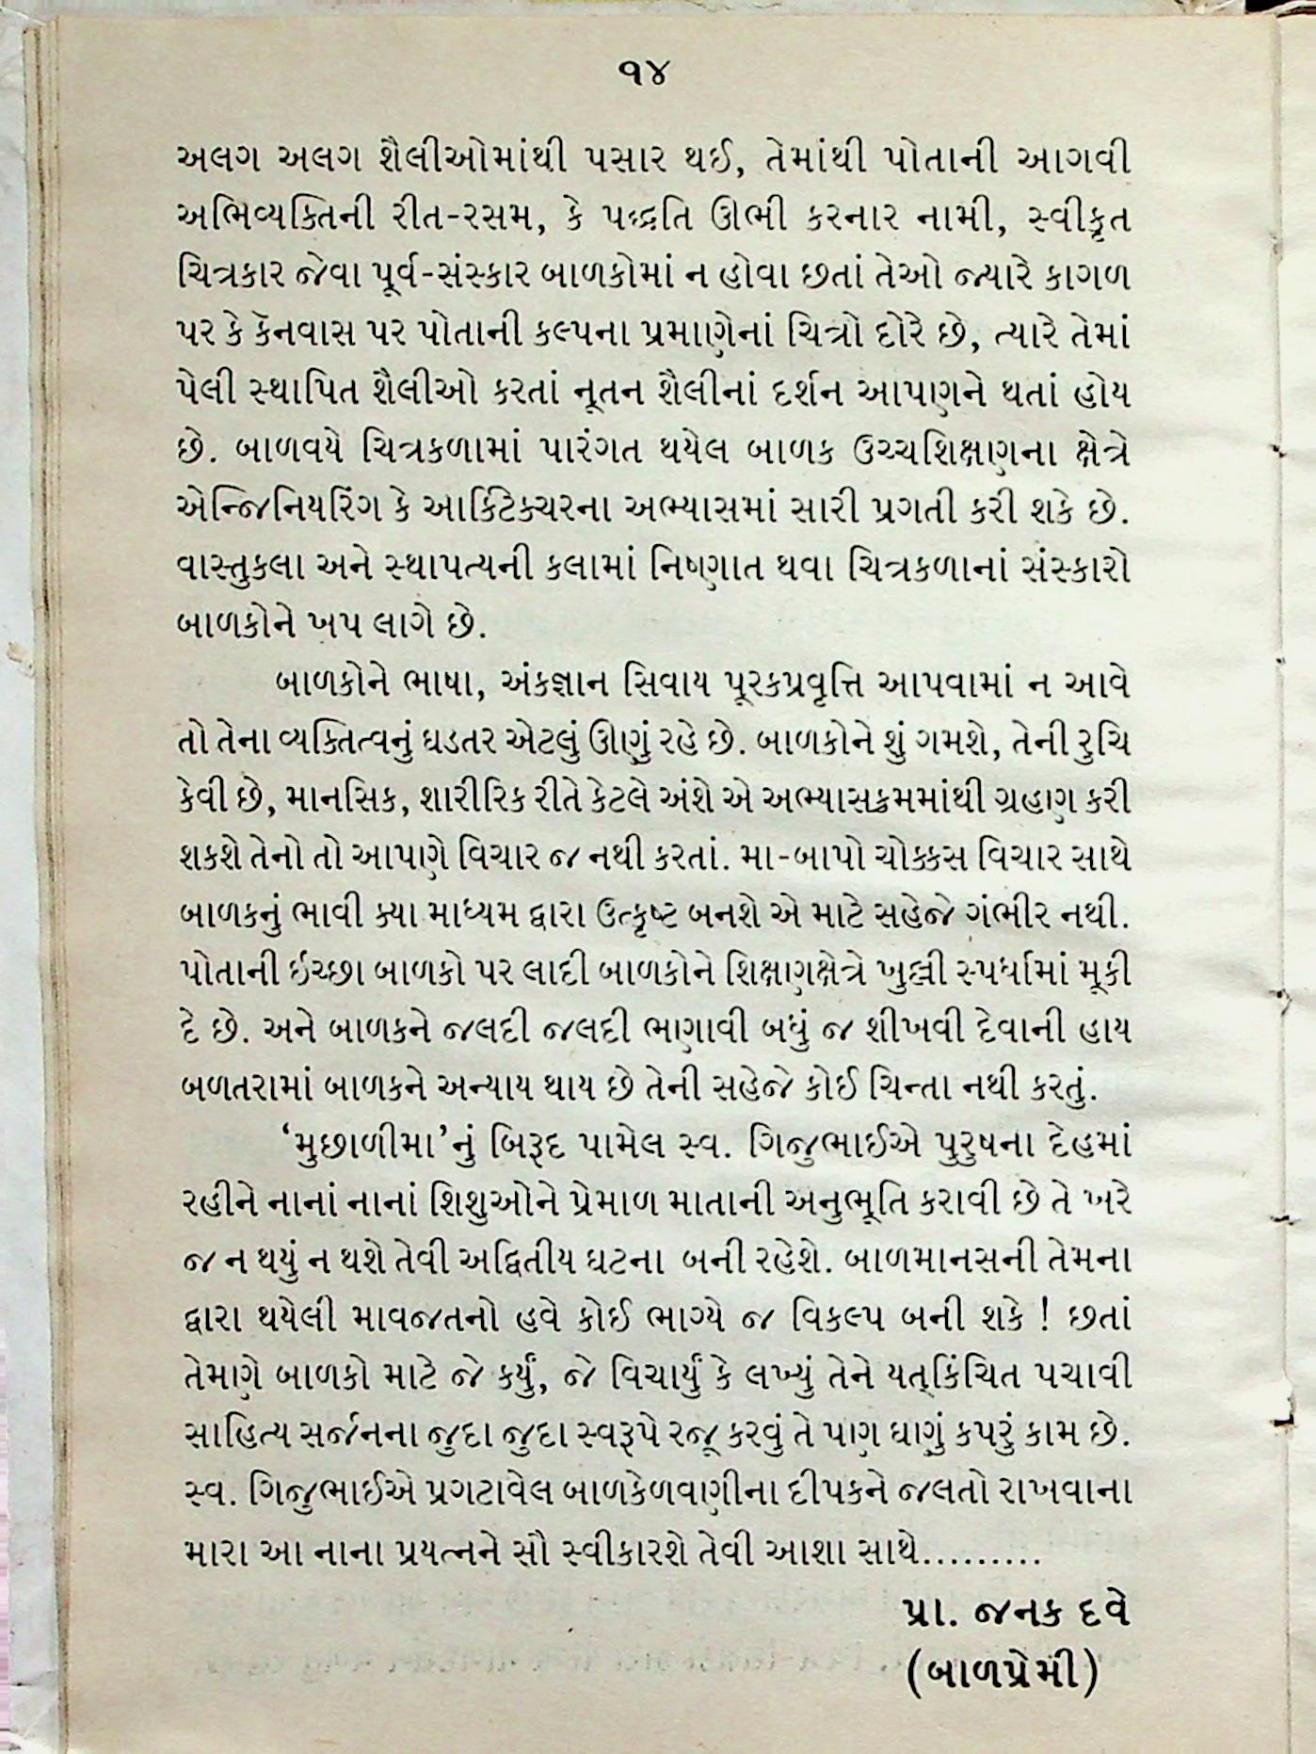 ૧૪
અલગ અલગ શૈલીઓમાંથી પસાર થઈ, તેમાંથી પોતાની આગવી
અભિવ્યક્તિની રીત-રસમ, કે પદ્ધતિ ઊભી કરનાર નામી, સ્વીકૃત
ચિત્રકાર જેવા પૂર્વ-સંસ્કાર બાળકોમાં ન હોવા છતાં તેઓ જ્યારે કાગળ
પર કે કેનવાસ પર પોતાની કલ્પના પ્રમાણેનાં ચિત્રો દોરે છે, ત્યારે તેમાં
પેલી સ્થાપિત શૈલીઓ કરતાં નૂતન શૈલીનાં દર્શન આપણને થતાં હોય
છે. બાળવયે ચિત્રકળામાં પારંગત થયેલ બાળક ઉચ્ચશિક્ષણના ક્ષેત્રે
એન્જિનિયરિંગ કે આર્કિટેક્ચરના અભ્યાસમાં સારી પ્રગતી કરી શકે છે.
વાસ્તુકલા અને સ્થાપત્યની કલામાં નિષ્ણાત થવા ચિત્રકળાનાં સંસ્કારો
બાળકોને ખપ લાગે છે.
બાળકોને ભાષા, અંકજ્ઞાન સિવાય પૂરકપ્રવૃત્તિ આપવામાં ન આવે
તો તેના વ્યક્તિત્વનું ઘડતર એટલું ઊણું રહે છે. બાળકોને શું ગમશે, તેની રુચિ
કેવી છે, માનસિક, શારીરિક રીતે કેટલે અંશે એ અભ્યાસક્રમમાંથી ગ્રહણ કરી
શકશે તેનો તો આપણે વિચાર જ નથી કરતાં. મા-બાપો ચોક્કસ વિચાર સાથે
બાળકનું ભાવી ક્યા માધ્યમ દ્વારા ઉત્કૃષ્ટ બનશે એ માટે સહેજે ગંભીર નથી.
પોતાની ઈચ્છા બાળકો પર લાદી બાળકોને શિક્ષણક્ષેત્રે ખુલ્લી સ્પર્ધામાં મૂકી
દે છે. અને બાળકને જલદી જલદી ભણાવી બધું જ શીખવી દેવાની હાય
બળતરામાં બાળકને અન્યાય થાય છે તેની સહેજે કોઈ ચિન્તા નથી કરતું.
‘મુછાળીમા’નું બિરૂદ પામેલ સ્વ. ગિજુભાઈએ પુરુષના દેહમાં
રહીને નાનાં નાનાં શિશુઓને પ્રેમાળ માતાની અનુભૂતિ કરાવી છે તે ખરે
જ ન થયું ન થશે તેવી અદ્વિતીય ઘટના બની રહેશે. બાળમાનસની તેમના
દ્વારા થયેલી માવજતનો હવે કોઈ ભાગ્યે જ વિકલ્પ બની શકે ! છતાં
તેમણે બાળકો માટે જે કર્યું, જે વિચાર્યું કે લખ્યું તેને યત્કિંચિત પચાવી
સાહિત્ય સર્જનના જુદા જુદા સ્વરૂપે રજૂ કરવું તે પણ ઘણું કપરું કામ છે.
સ્વ. ગિજુભાઈએ પ્રગટાવેલ બાળકેળવણીના દીપકને જલતો રાખવાના
મારા આ નાના પ્રયત્નને સૌ સ્વીકારશે તેવી આશા સાથે.........
પ્રા. જનક દવે
(બાળપ્રેમી)